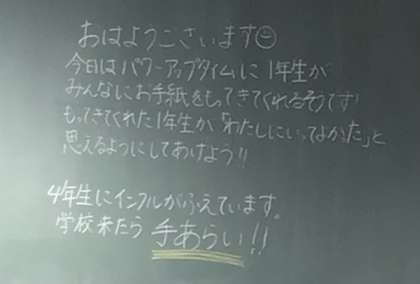 おはようございます☺
今日はパワーアップタイムに1年生が
みんなにお手紙をもってきてくれるそうです!
もってきてくれた1年生が「わたしにいってよかった」と
思えるようにしてあげよう!!
4年生にインフルがふえています。
学校来たら 手あらい!!